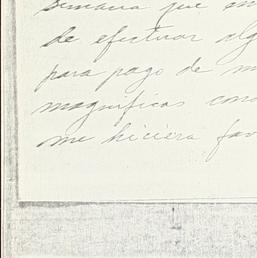 semana que
de efectuar alg
para pago de m
magnificas
me hiciera fav